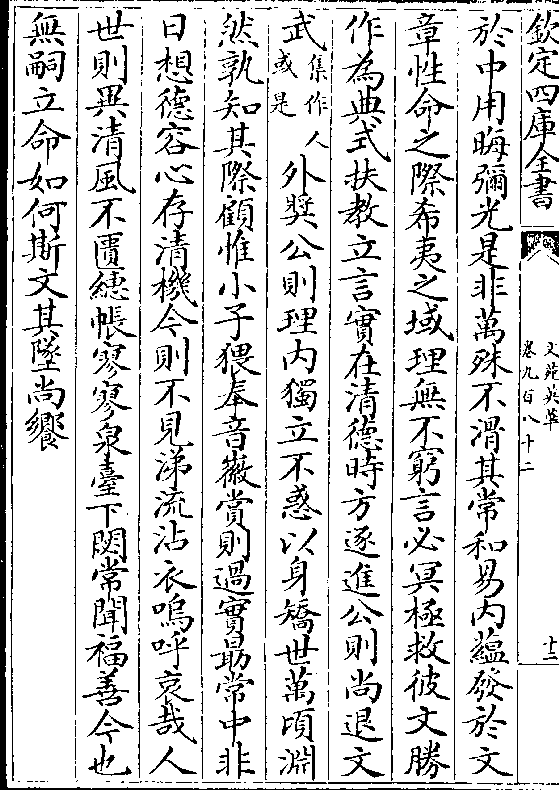 欽定四庫全書
文苑英華
卷九百八十二
十三
於中用晦彌光是非萬殊不滑其常和易内藴發於文
章性命之際希夷之域理無不窮言必冥極救彼文勝
作為典式扶教立言實在清德時方逐進公則尚退文
武集作人或是外奬公則理内獨立不惑以身矯世萬頃淵
然孰知其際顧惟小子猥奉音徽賞則過實勗常中非
日想德容心存清機今則不見涕流沾衣嗚呼哀哉人
世則異清風不匱繐帳寥寥泉臺下閟常聞福善今也
無嗣立命如何斯文其墜尚饗